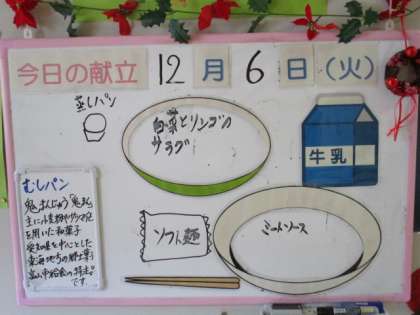 今日の献立 12月6日(火)
蒸しパン
白菜とリンゴの
サラダ
牛乳
ソフト麺
ミートソース
むしパン
鬼まんじゅう「鬼ま」
主に小麦粉やサツマ芋
を用いた和菓子
愛知県を中心とした
東海地方の郷土菓子
です